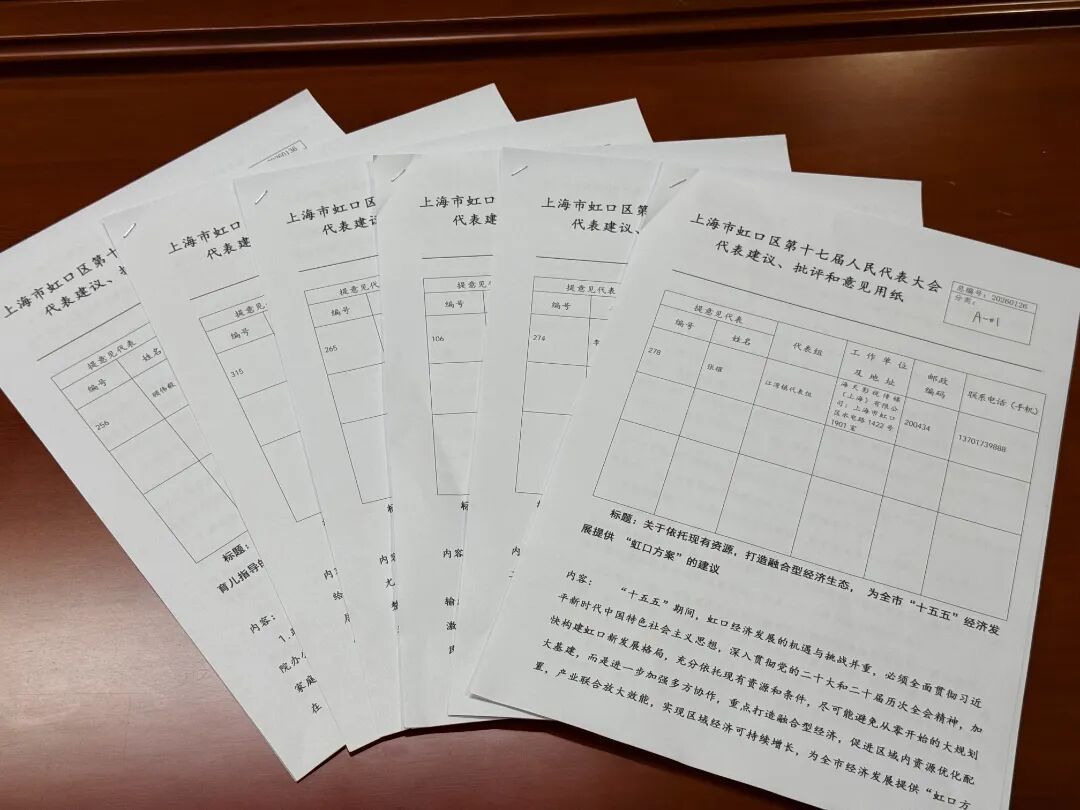 260136
上海市虹口区第十
代表建议、批
提意见代表
编号
姓名
256
标题:
育儿指导的
内容:
1.
院办
家庭
在
上海市虹口
代表建
提意
编号
315
上海市虹口区
代表建议
提意见
编号
265
内
给
上海市虹
代表建
提意见
编号
106
标
内容
输
激
上海市虹口区第
代表建议、
提意见代表
编号
274
李
标
内容
上海市虹口区第十七届人民代表大会
代表建议、批评和意见用纸
总编号:20260126
分类:
A-01
提意见代表
编号
姓名
代表组
工作单位
及地址
邮政
编码
联系电话(手机)
278
张榴
江湾镇代表组
海天影视传媒
(上海)有限公
司;上海市虹口
区水电路 1422 号
1901 室
200434
13701739888
标题:关于依托现有资源,打造融合型经济生态,为全市“十五五”经济发
展提供 “虹口方案”的建议
内容: “十五五”期间,虹口经济发展的机遇与挑战并重,必须全面贯彻习近
平新时代中国特色社会主义思想,深入贯彻党的二十大和二十届历次全会精神,加
快构建虹口新发展格局,充分依托现有资源和条件,尽可能避免从零开始的大规划
大基建,而是进一步加强多方协作,重点打造融合型经济,促进区域内资源优化配
置,产业联合放大效能,实现区域经济可持续增长,为全市经济发展提供“虹口方